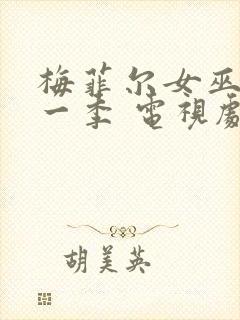 梅菲尔女巫
一季 電視劇
胡美英